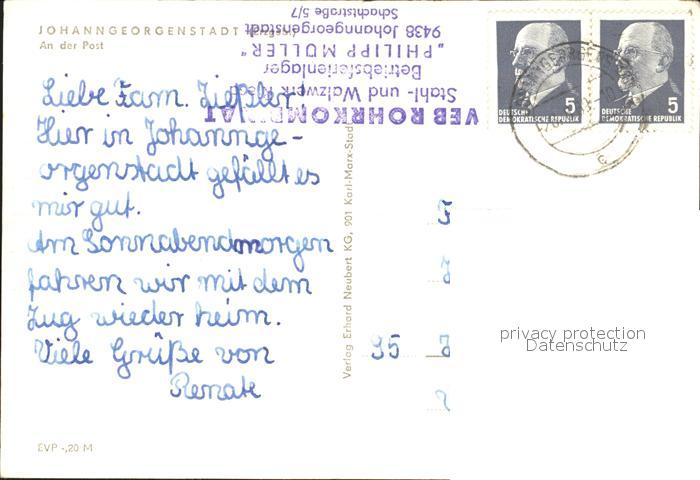 JOHANNGEORGENSTADT
An der Post
Liebe Fam. Zießler.
Hier in Johannge-
orgenstadt gefällt es
mir gut.
Am Sonnabendmorgen
fahren wir mit dem
Zug wieder heim.
Viele Grüße von
Renate
EVP -,20 M
Verlag Erhard Neubert KG, 901 Karl-Marx-Stadt
VEB ROHRKOMBINAT
Stahl- und Walzwerk
Betriebsferienlager
„PHILIPP MÜLLER"
9438 Johanngeorgenstadt
Schachtstraße 5/7
5
DEUTSCHE
DEMOKRATISCHE REPUBLIK
5
DEUTSCHE
DEMOKRATISCHE REPUBLIK
95
privacy protection
Datenschutz